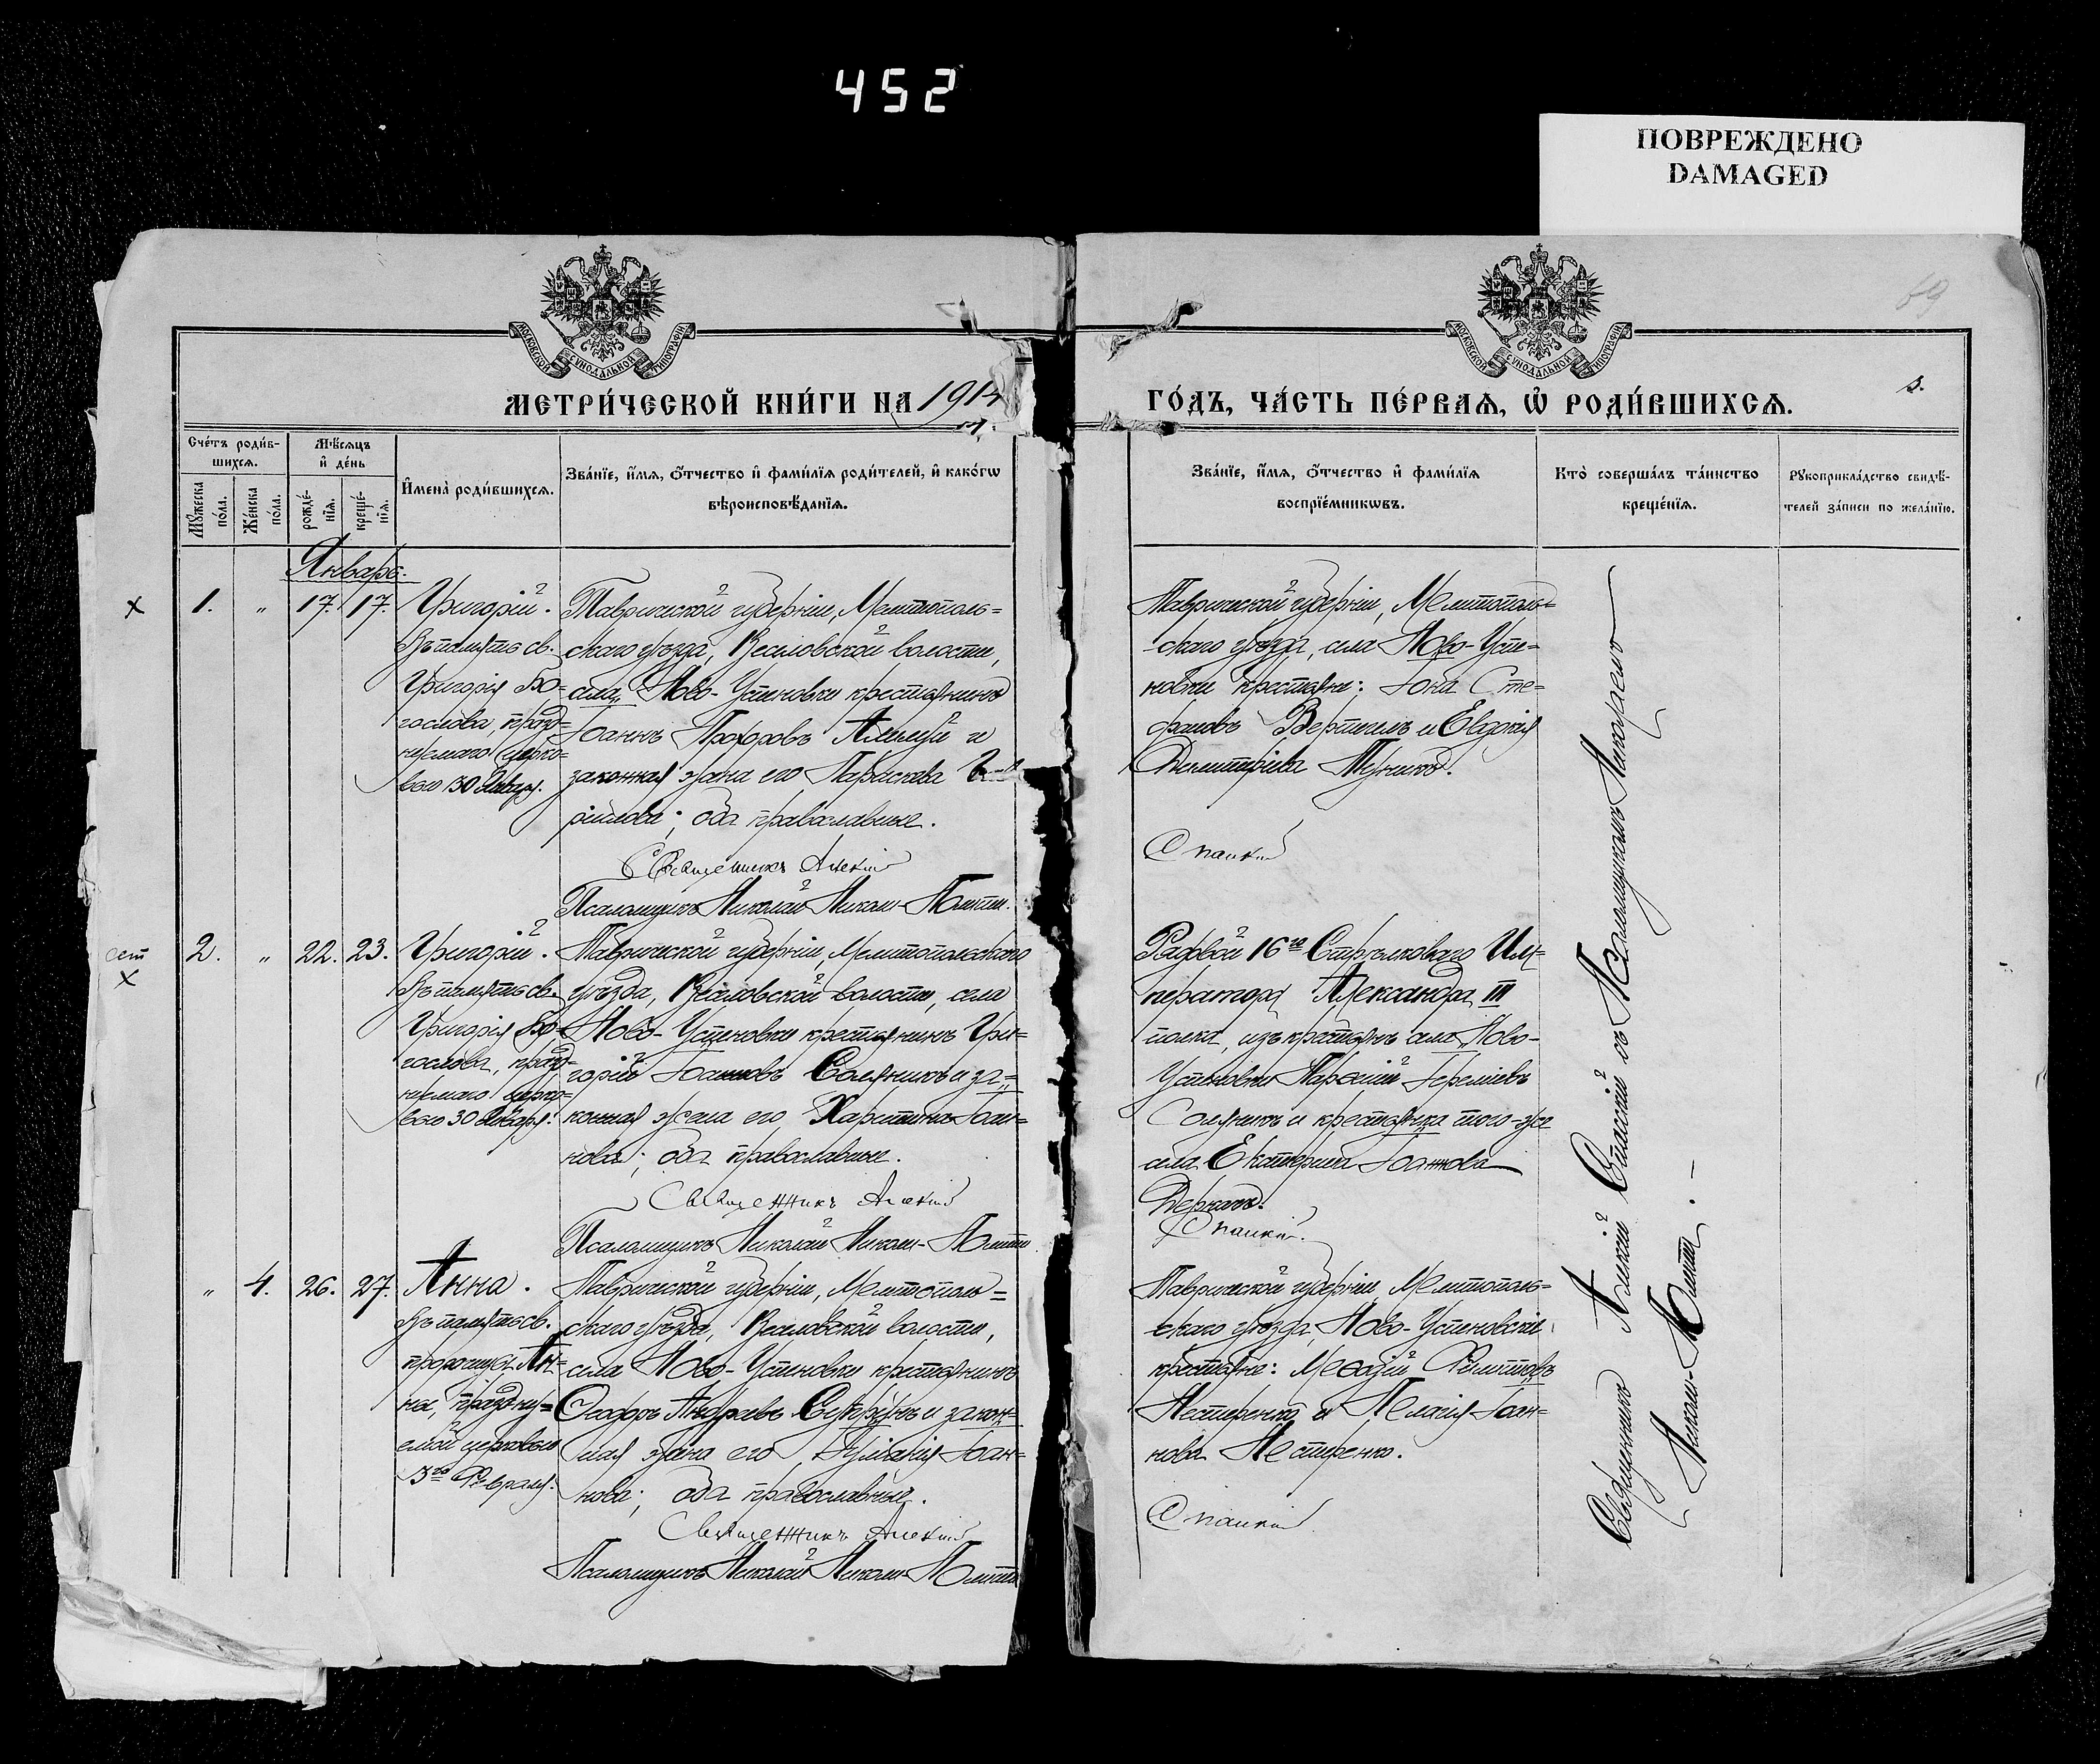 452
ПОВРЕЖДЕНО
DAMAGED
69
МОСКОВСКОЙ СѴНОДАЛЬНОЙ ТИПОГРАФІИ
МОСКОВСКОЙ СѴНОДАЛЬНОЙ ТИПОГРАФІИ
МЕТРИ́ЧЕСКОЙ КНИ́ГИ НА 1914
ГО́ДЪ, ЧА́СТЬ ПЕ́РВАѦ, Ѡ҆ РОДИ́ВШИХСѦ.
Сче́тъ роди́в-
шихсѧ.
Мѣ́сѧцъ
и҆ де́нь
Мꙋ́жеска по́ла.
Же́нска по́ла.
рожде́-
нїѧ.
креще́-
нїѧ.
И҆мена̀ роди́вшихсѧ.
Зва́нїе, и҆́мѧ, ѻ҆́тчество и҆ фами́лїѧ роди́телей, и҆ како́гѡ
вѣроисповѣ́данїѧ.
Зва́нїе, и҆́мѧ, ѻ҆́тчество и҆ фами́лїѧ
воспрїе́мникѡвъ.
Кто̀ соверша́лъ та́инство
креще́нїѧ.
Рꙋкоприкла́дство свидѣ́-
телей за́писи по жела́нїю.
Январь.
1. „ 17. 17.
Григорій.
Въ память св.
Григорія Бо-
гослова, празд-
нуемаго церко-
вью 30 Января.
Таврической губерніи, Мелитополь-
скаго уѣзда, Веселовской волости,
села Ново-Успеновки крестьянинъ
Іоаннъ Прохоровъ
законная жена его Параскева
рилова; оба православные.
Священникъ Алексій
Псаломщикъ Николай
Таврической губерніи, Мелитополь-
скаго уѣзда, села Ново-Успе-
новки крестьяне: Іона Сте-
фановъ Вертегелъ и Евдокія
Димитріева
Спаскій
сет
2. „ 22. 23.
Григорій.
Въ память св.
Григорія Бо-
гослова, празд-
нуемаго церко-
вью 30 Января.
Таврической губерніи, Мелитопольскаго
уѣзда, Веселовской волости, села
Ново-Успеновки крестьянинъ Гри-
горій Іоанновъ Соляникъ и за-
конная жена его Харитина Іоан-
нова; оба православные.
Священникъ Алексій
Псаломщикъ Николай
Рядовой 16го Стрѣлковаго Им-
ператора Александра III
полка, изъ крестьянъ села Ново-
Успеновки Іереміевъ
Соляникъ и крестьянка того-же
села Екатерина Іоаннова
Спаскій.
„ 4. 26. 27.
Анна.
Въ память св.
пророчицы Ан-
ны, праздну-
емой церковью
3го Февраля.
Таврической губерніи, Мелитополь-
скаго уѣзда, Веселовской волости,
села Ново-Успеновки крестьянинъ
Ѳеодоръ Андреевъ Супрунъ и закон-
ная жена его Іоан-
нова; оба православные.
Священникъ Алексій
Псаломщикъ Николай
Таврической губерніи, Мелитополь-
скаго уѣзда, Ново-Успеновскіе
крестьяне: Меѳодій Филипповъ
Нестеренко и Пелагія Іоан-
нова Нестеренко.
Спаскій
Священникъ Алексій Спаскій съ Псаломщикомъ Николаемъ